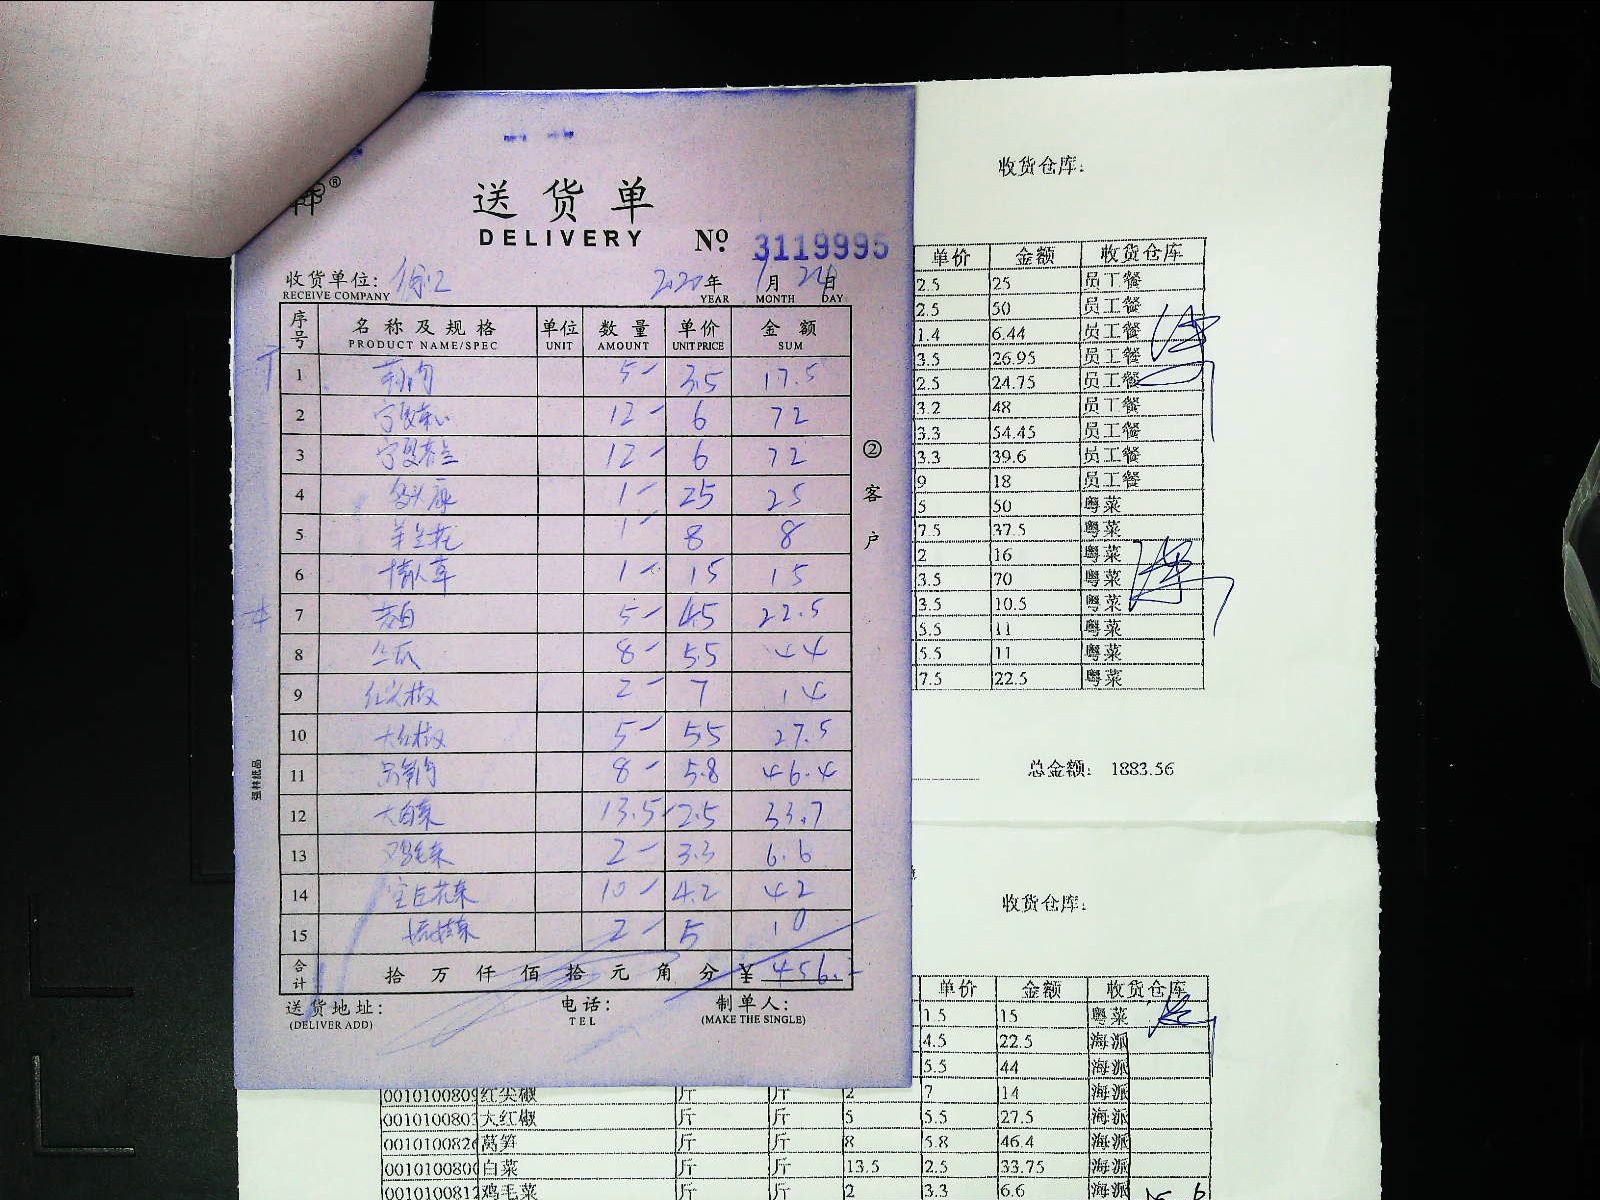 送货单
DELIVERY
№ 3119995
收货单位: 徐汇 2020年 1月 24日
RECEIVE COMPANY YEAR MONTH DAY
序号 名称及规格 单位 数量 单价 金额
PRODUCT NAME/SPEC UNIT AMOUNT UNIT PRICE SUM
1 5 3.5 17.5
2 宁夏菜心 12 6 72
3 宁夏芥兰 12 6 72
4 1 25 25
5 羊兰花 1 8 8
6 情人草 1 15 15
7 茭白 5 4.5 22.5
8 丝瓜 8 5.5 44
9 红尖椒 2 7 14
10 大红椒 5 5.5 27.5
11 8 5.8 46.4
12 大白菜 13.5 2.5 33.7
13 鸡毛菜 2 3.3 6.6
14 花菜 10 4.2 42
15 2 5 10
合计 拾万仟佰拾元角分 ¥ 456.-
送货地址: 电话: 制单人:
(DELIVER ADD) TEL (MAKE THE SINGLE)
②客户
收货仓库:
单价 金额 收货仓库
2.5 25 员工餐
2.5 50 员工餐
1.4 6.44 员工餐
3.5 26.95 员工餐
2.5 24.75 员工餐
3.2 48 员工餐
3.3 54.45 员工餐
3.3 39.6 员工餐
9 18 员工餐
5 50 粤菜
7.5 37.5 粤菜
2 16 粤菜
3.5 70 粤菜
3.5 10.5 粤菜
5.5 11 粤菜
5.5 11 粤菜
7.5 22.5 粤菜
总金额: 1883.56
收货仓库:
单价 金额 收货仓库
1.5 15 粤菜
4.5 22.5 海派
5.5 44 海派
0010100809 红尖椒 斤 斤 2 7 14 海派
001010080 大红椒 斤 斤 5 5.5 27.5 海派
001010082 莴笋 斤 斤 8 5.8 46.4 海派
001010080 白菜 斤 斤 13.5 2.5 33.75 海派
001010081 鸡毛菜 斤 斤 2 3.3 6.6 海派